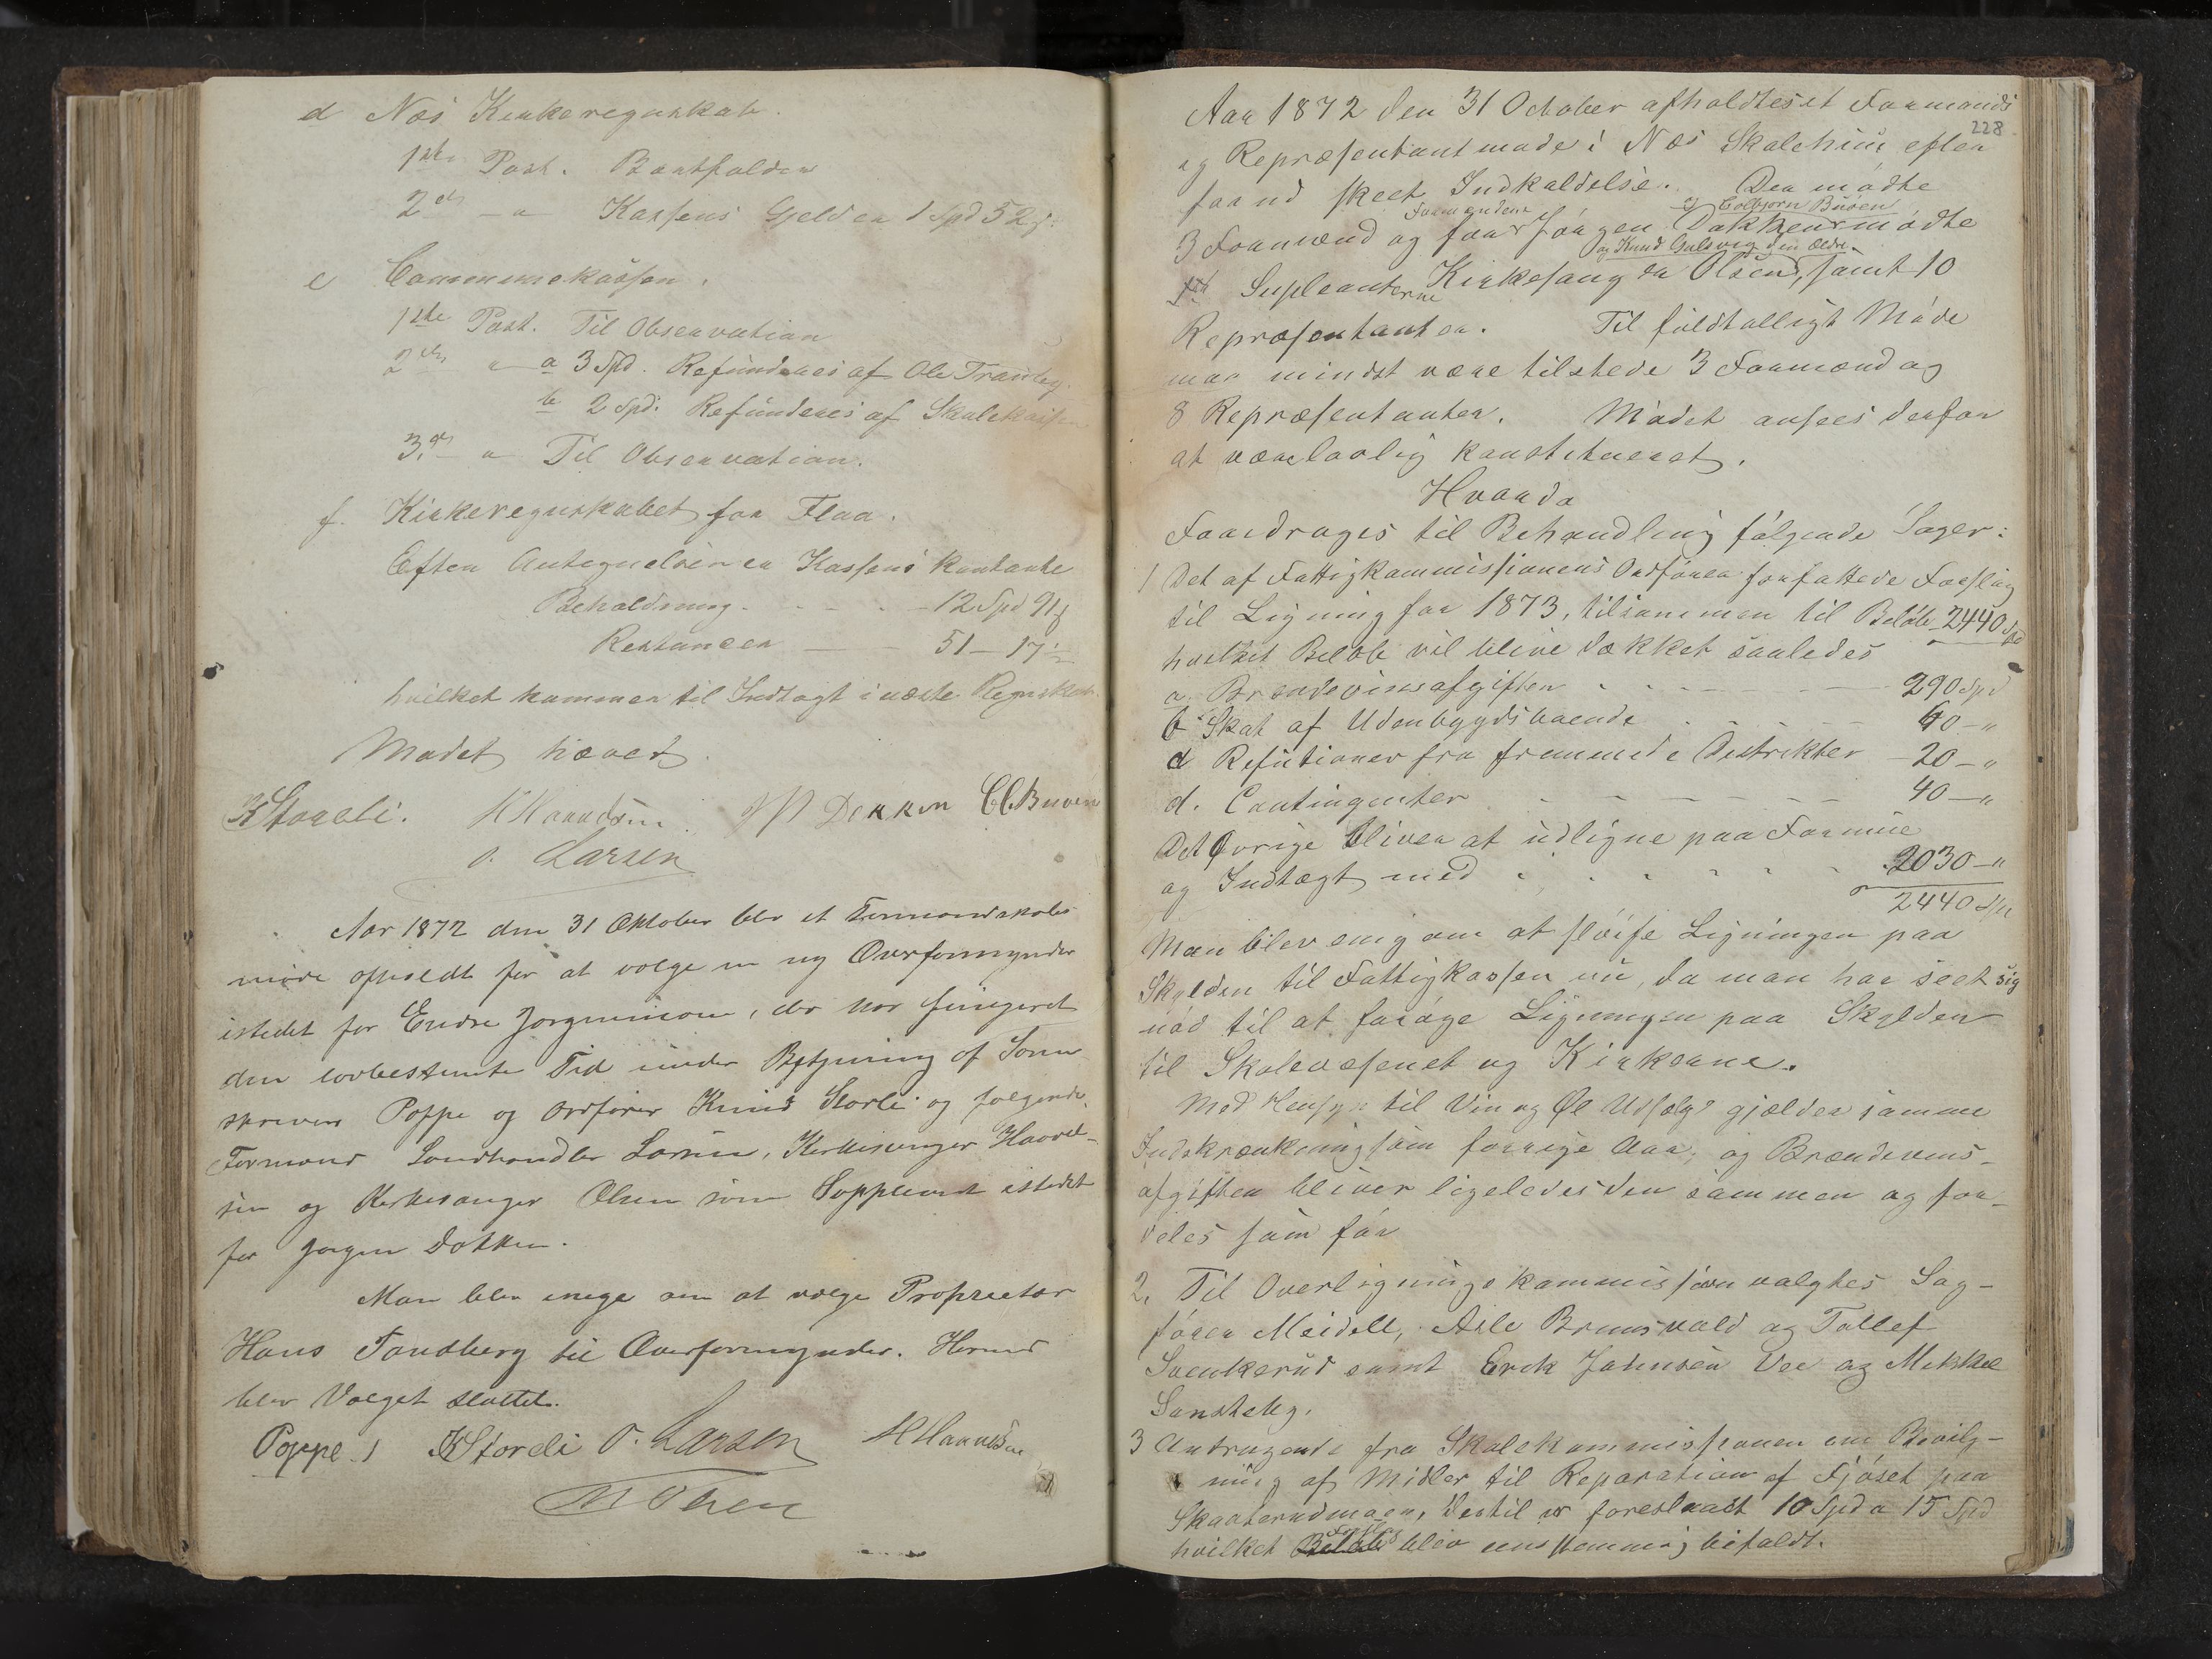 d Næs Kirkeregnskab.
1ste Post. Bortfalder
2den — " Kassens Gjeld er 1 Spd 52 s.
e Communekassen.
1ste Post. Til Observation
2den " a 3 Spd. Refunderes af Ole Tranby.
b 2 Spd. Refunderes af Skolekassen
3die " Til Observation.
f. Kirkeregnskabet for Flaa.
Efter Antegnelsen er Kassens kontante
Beholdning. - - - - 12 Spd 91 s
Restancer — - 51 — 17½
hvilket kommer til Indtægt i næste Regnskab.
Mødet hævet.
K Storeli. H Haavelsen. JP Dokken CC. Bruen
O. Larsen
Aar 1872 den 31 Oktober blev et Formandskabs
møde afholdt for at vælge en ny Overformynder
istedet for Endre Jørgensen, der har fungeret
den lovbestemte Tid under Bestyrning af Soren
skriver Poppe og Ordfører Knud Storli og følgende
Formænd Landhandler Larsen, Kirkesanger Haavel-
sen og Kirkesanger Olsen som Suppleant istedet
for Jørgen Dokken.
Man blev enige om at vælge Proprietær
Hans Sandberg til Overformynder. Hermed
blev Valget sluttet.
Poppe. K Storeli O. Larsen H Haavelsen
N Olsen
228
Aar 1872 den 31 October afholdtes et Formands
og Repræsentantmøde i Næs Skolehuus efter
forud skeet Indkaldelse. Der mødte
3 Formænd og for Formændene Jørgen Dokken og Colbjørn Bruen mødte
Supleanterne Kirkesanger Olsen og Knud Gulsvig den ældre, samt 10
Repræsentanter. Til fuldtalligt Møde
maa mindst være tilstede 3 Formænd og
8 Repræsentanter. Mødet ansees derfor
at være lovlig konstitueret.
Hvorda
Foredroges til Behandling følgende Sager:
1 Det af Fattigkommissionens Ordfører forfattede Forslag
til Ligning for 1873, tilsammen til Beløb 2440 Spd
hvilket Beløb vil blive dækket saaledes
a. Brændevinsafgiften - - - — 290 Spd
b Skat af Udenbygdsboende - - - — 60 — "
c Refutioner fra fremmede Distrikter — 20 — "
d. Contingenter - — — — - 40 — "
Det Øvrige bliver at udligne paa Formue
og Indtægt med - - - - - 2030 — "
2440 Spd
Man blev enig om at sløife Ligningen paa
Skylden til Fattigkassen nu, da man har seet sig
nød til at forøge Ligningen paa Skylden
til Skolevæsenet og Kirkerne.
Med Hensyn til Vin og Øl Udsalg gjælder samme
Indskrænkning som forrige Aar, og Brændevins-
afgiften bliver ligeledes den sammen og for-
deles som før
2. Til Overligningskommission valgtes Sag-
fører Meidell, Asle Bromsvald og Tollef
Svenkerud samt Erik Johnsen Vee og Mikkel
Sansteby.
3 Andragende fra Skolekommissionen om Bevilg-
ning af Midler til Reparation af Fjøset paa
Skaaterudmoen, dertil er foreslaaet 10 Spd a 15 Spd
hvilket Beløb Forslag blev eenstemmig bifaldt.